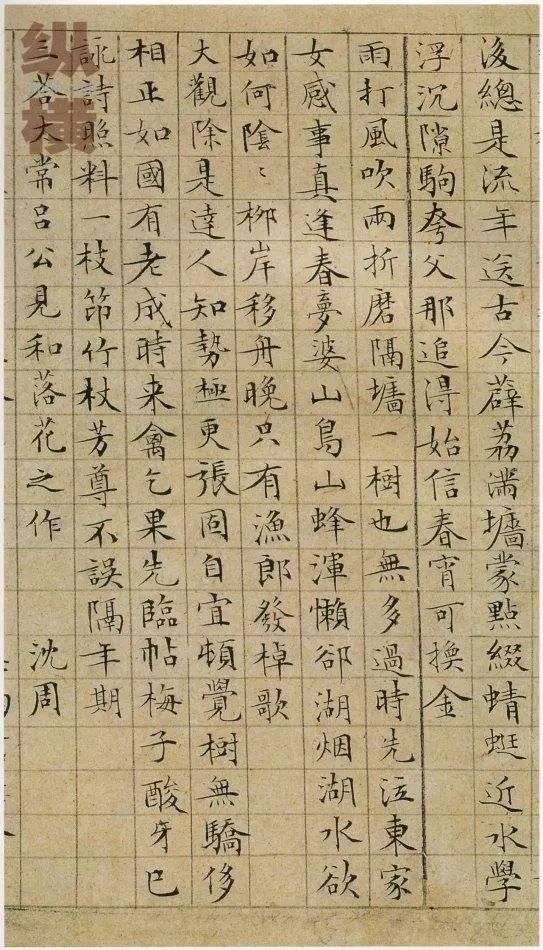 後總是流年送古今薜荔滿墻蒙點綴蜻蜓近水學
浮沉隙駒夸父那追得始信春宵可換金
雨打風吹兩折磨隔墻一樹也無多過時先泣東家
女感事真逢春夢婆山鳥山蜂渾懶郤湖烟湖水欲
如何陰〻柳岸移舟晚只有漁郎發棹歌
大觀除是達人知勢極更張固自宜頓覺樹無驕侈
相正如國有老成時来禽乞果先臨帖梅子酸牙已
詠詩照料一枝筇竹杖芳尊不誤隔年期
三荅太常呂公見和落花之作 沈周
纵横